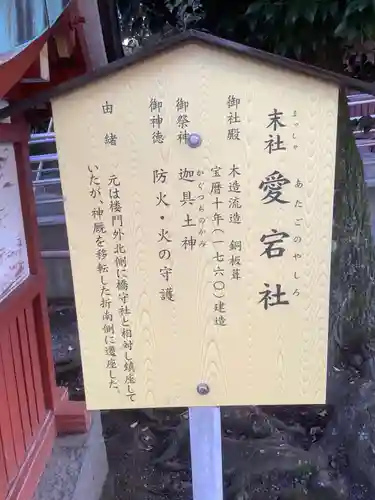 まっしゃ
末社
あたごのやしろ
愛宕社
御社殿 木造流造 銅板葺
宝暦十年（一七六〇）建造
御祭神 迦具土神
かぐつちのかみ
御神徳 防火・火の守護
由緒 元は楼門外北側に橋守社と相対し鎮座して
いたが、神厩を移転した折南側に遷座した。